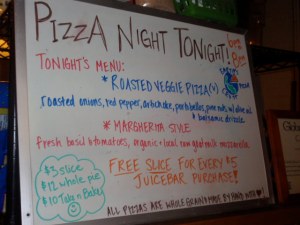 PIZZA NIGHT TONIGHT!
TONIGHT'S MENU:
* ROASTED VEGGIE PIZZA (V)
roasted onions, red pepper, artichoke, portobellos, pine nuts, w/ olive oil
& balsamic drizzle.
* MARGHERITA STYLE
fresh basil & tomatoes, organic + local, raw mozzarella.
$3 slice
$12 whole pie
$10 Take n Bake
FREE SLICE FOR EVERY $5
JUICEBAR PURCHASE!
ALL PIZZAS ARE WHOLE GRAIN & MADE BY HAND WITH